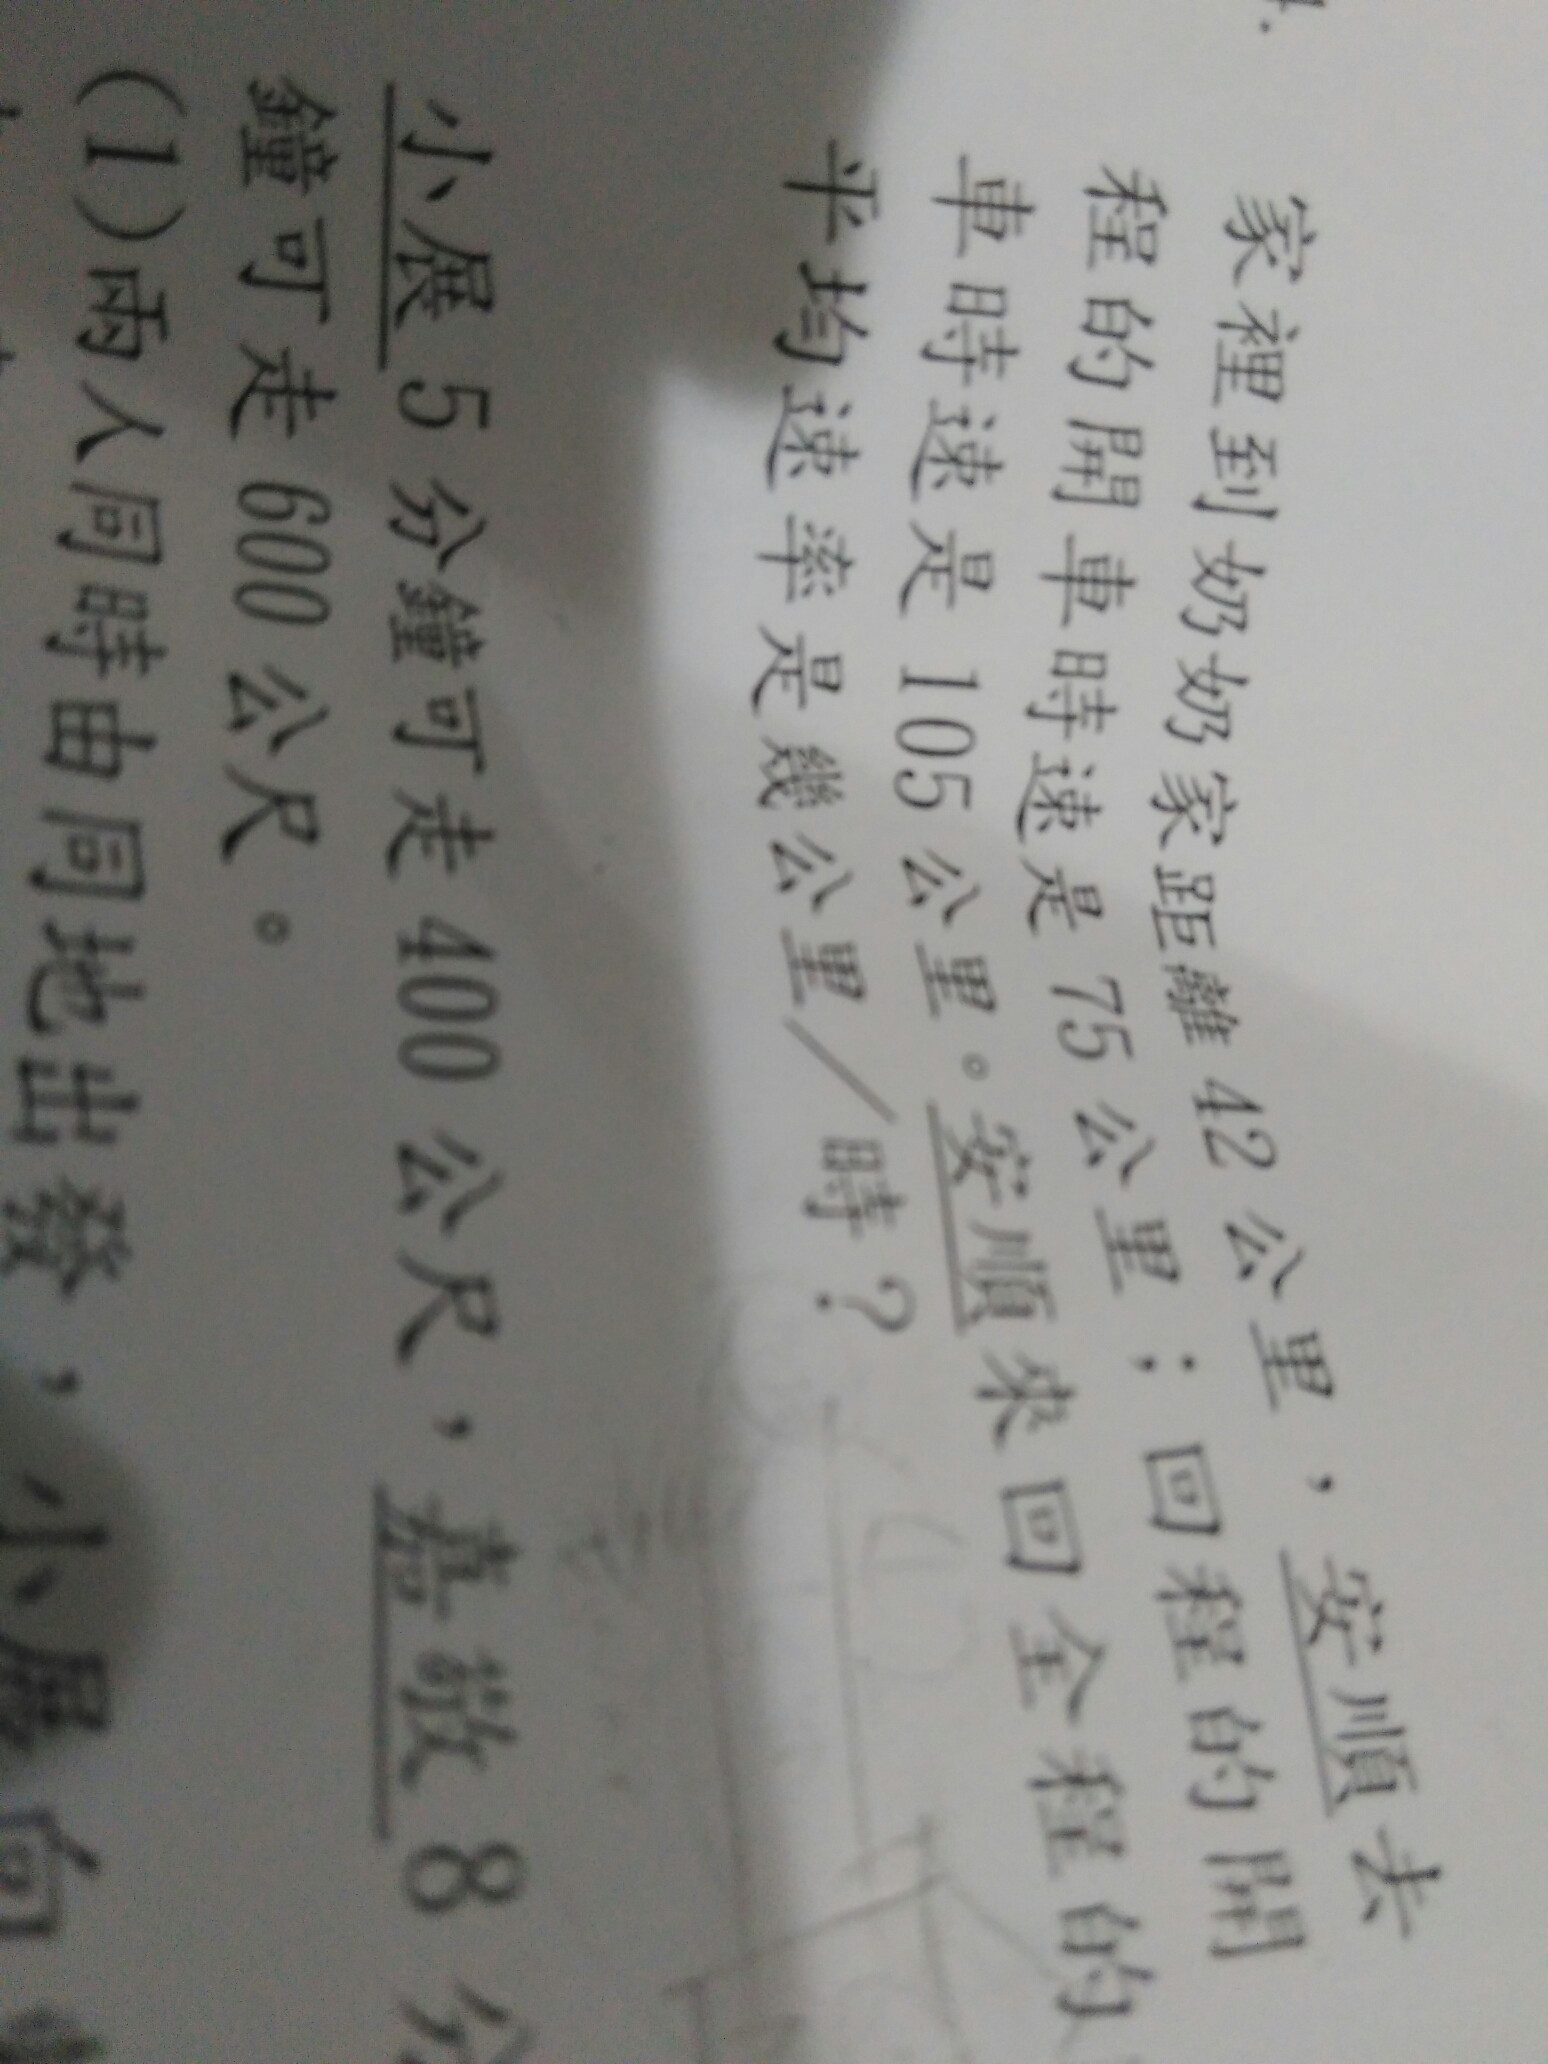 家裡到奶奶家距離 42 公里，安順去
程的開車時速是 75 公里；回程的開
車時速是 105 公里。安順來回全程的
平均速率是幾公里／時？
小展 5 分鐘可走 400 公尺，嘉敏 8 分
鐘可走 600 公尺。
(1)兩人同時由同地出發，小展向